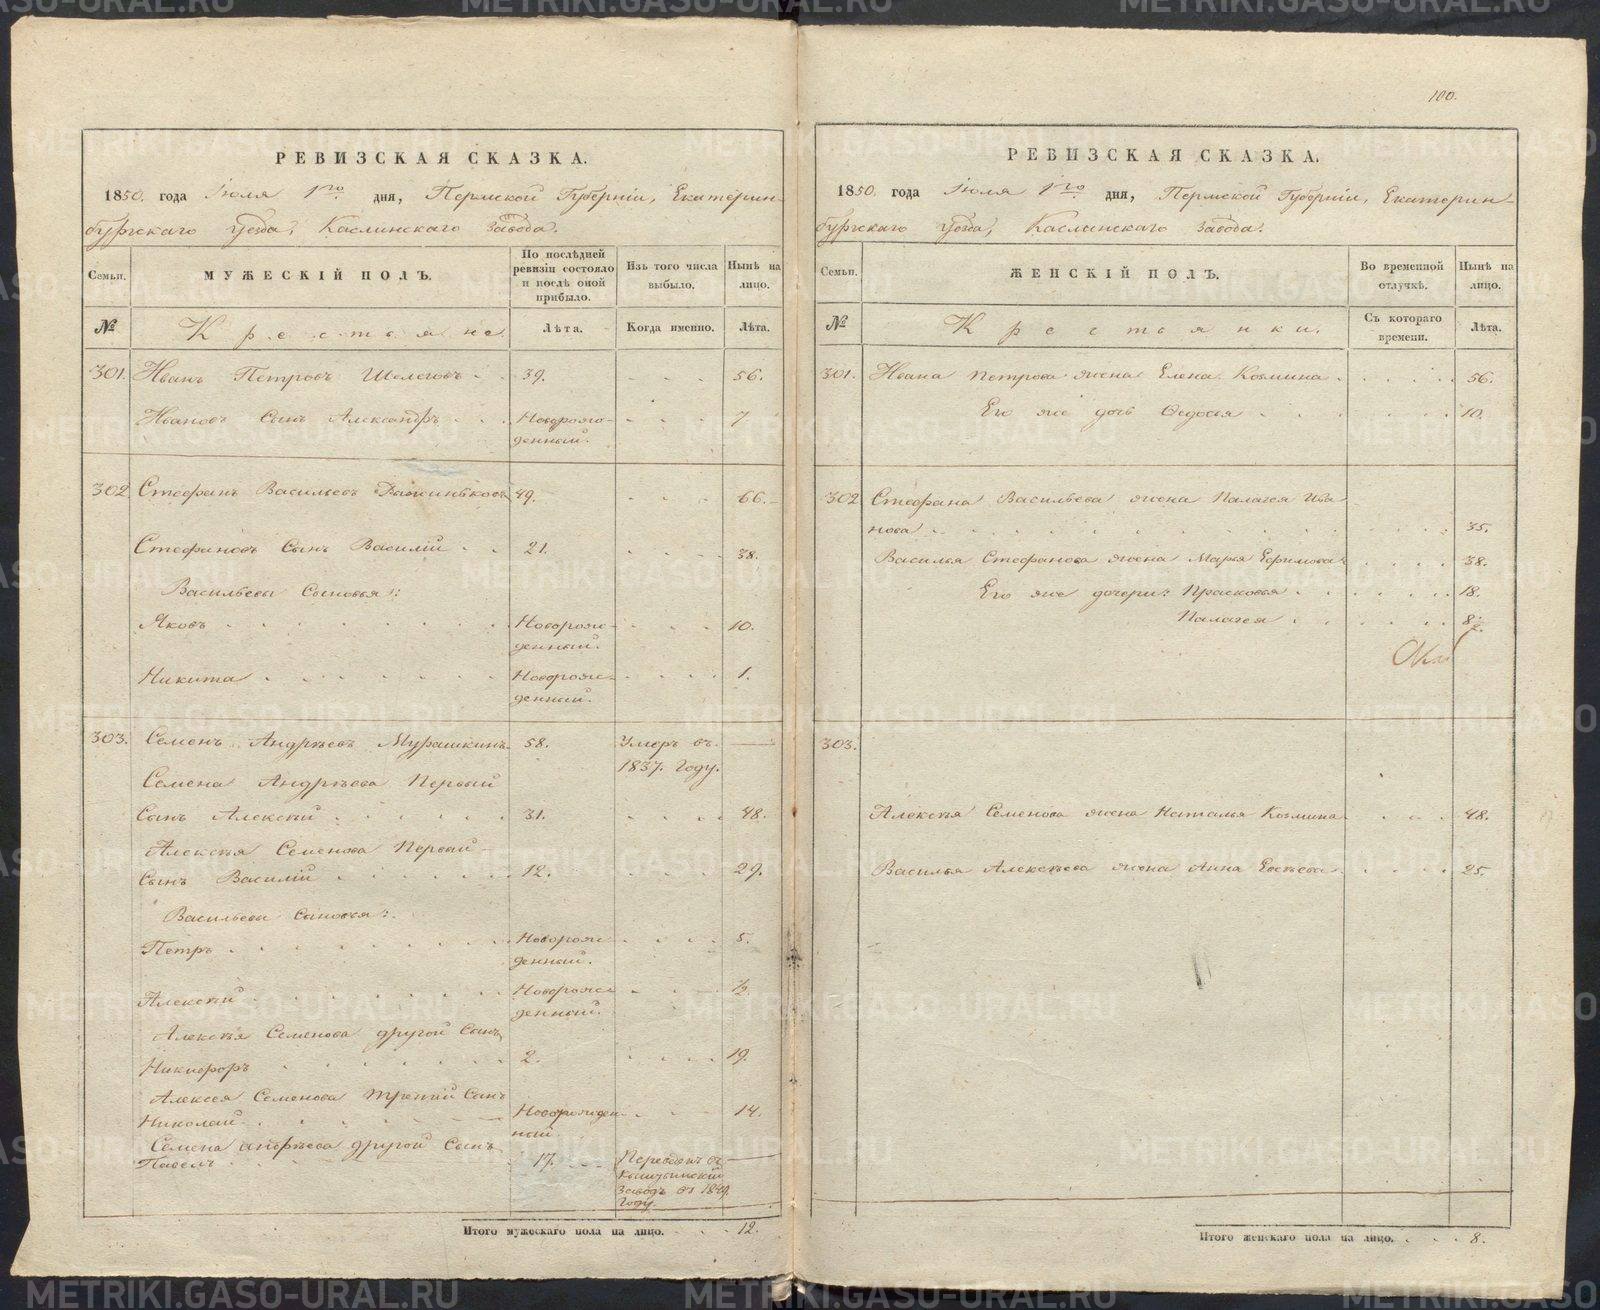 100.
РЕВИЗСКАЯ СКАЗКА.
1850. года Іюля 1го дня, Пермской Губерніи, Екатерин-
бургскаго Уезда, Каслинскаго Завода.
Семьи. МУЖЕСКІЙ ПОЛЪ. По послѣдней ревизіи состояло и послѣ оной прибыло. Изъ того числа выбыло. Нынѣ на лицо.
№ Крестьяне Лѣта. Когда именно. Лѣта.
301. Иванъ Петровъ Шелеговъ 39. 56.
Ивановъ Сынъ Александръ Новорож-
денный. 7
302 Стефанъ Васильевъ 49. 66.
Стефановъ Сынъ Василій 21. 38.
Васильевы Сыновья:
Яковъ Новорож-
денный. 10.
Никита Новорож-
денный. 1.
303. Семенъ Андрѣевъ Мурашкинъ 58. Умеръ въ
1837. Году.
Семена Андрѣева Первый
Сынъ Алексѣй 31. 48.
Алексѣя Семенова Первый
Сынъ Василій 12. 29.
Васильевы Сыновья:
Петръ Новорож-
денный. 5.
Алексѣй Новорож-
денный. ½
Алексѣя Семенова другой Сынъ
Никифоръ 2. 19.
Алексея Семенова третій Сынъ
Николай Новорожден-
ный. 14.
Семена Андрѣева другой Сынъ
Павелъ 17. Переведенъ въ
Кыштымскій
Заводъ въ 1849.
Году.
Итого мужескаго пола на лицо. 12.
РЕВИЗСКАЯ СКАЗКА.
1850. года Іюля 1го дня, Пермской Губерніи, Екатерин-
бургскаго Уезда, Каслинскаго Завода.
Семьи. ЖЕНСКІЙ ПОЛЪ. Во временной отлучкѣ. Нынѣ на лицо.
№ Крестьянки. Съ котораго времени. Лѣта.
301. Ивана Петрова жена Елена Козмина 56.
Его же дочь Федосья 10.
302 Стефана Васильева жена Палагея Ива-
нова 35.
Василья Стефанова жена Марья Ефимова 38.
Его же дочери: Прасковья 18.
Палагея 8
303.
Алексѣя Семенова жена Наталья Козмина 48.
Василья Алексѣева жена Анна 25.
Итого женскаго пола на лицо. 8.
METRIKI.GASO-URAL.RU